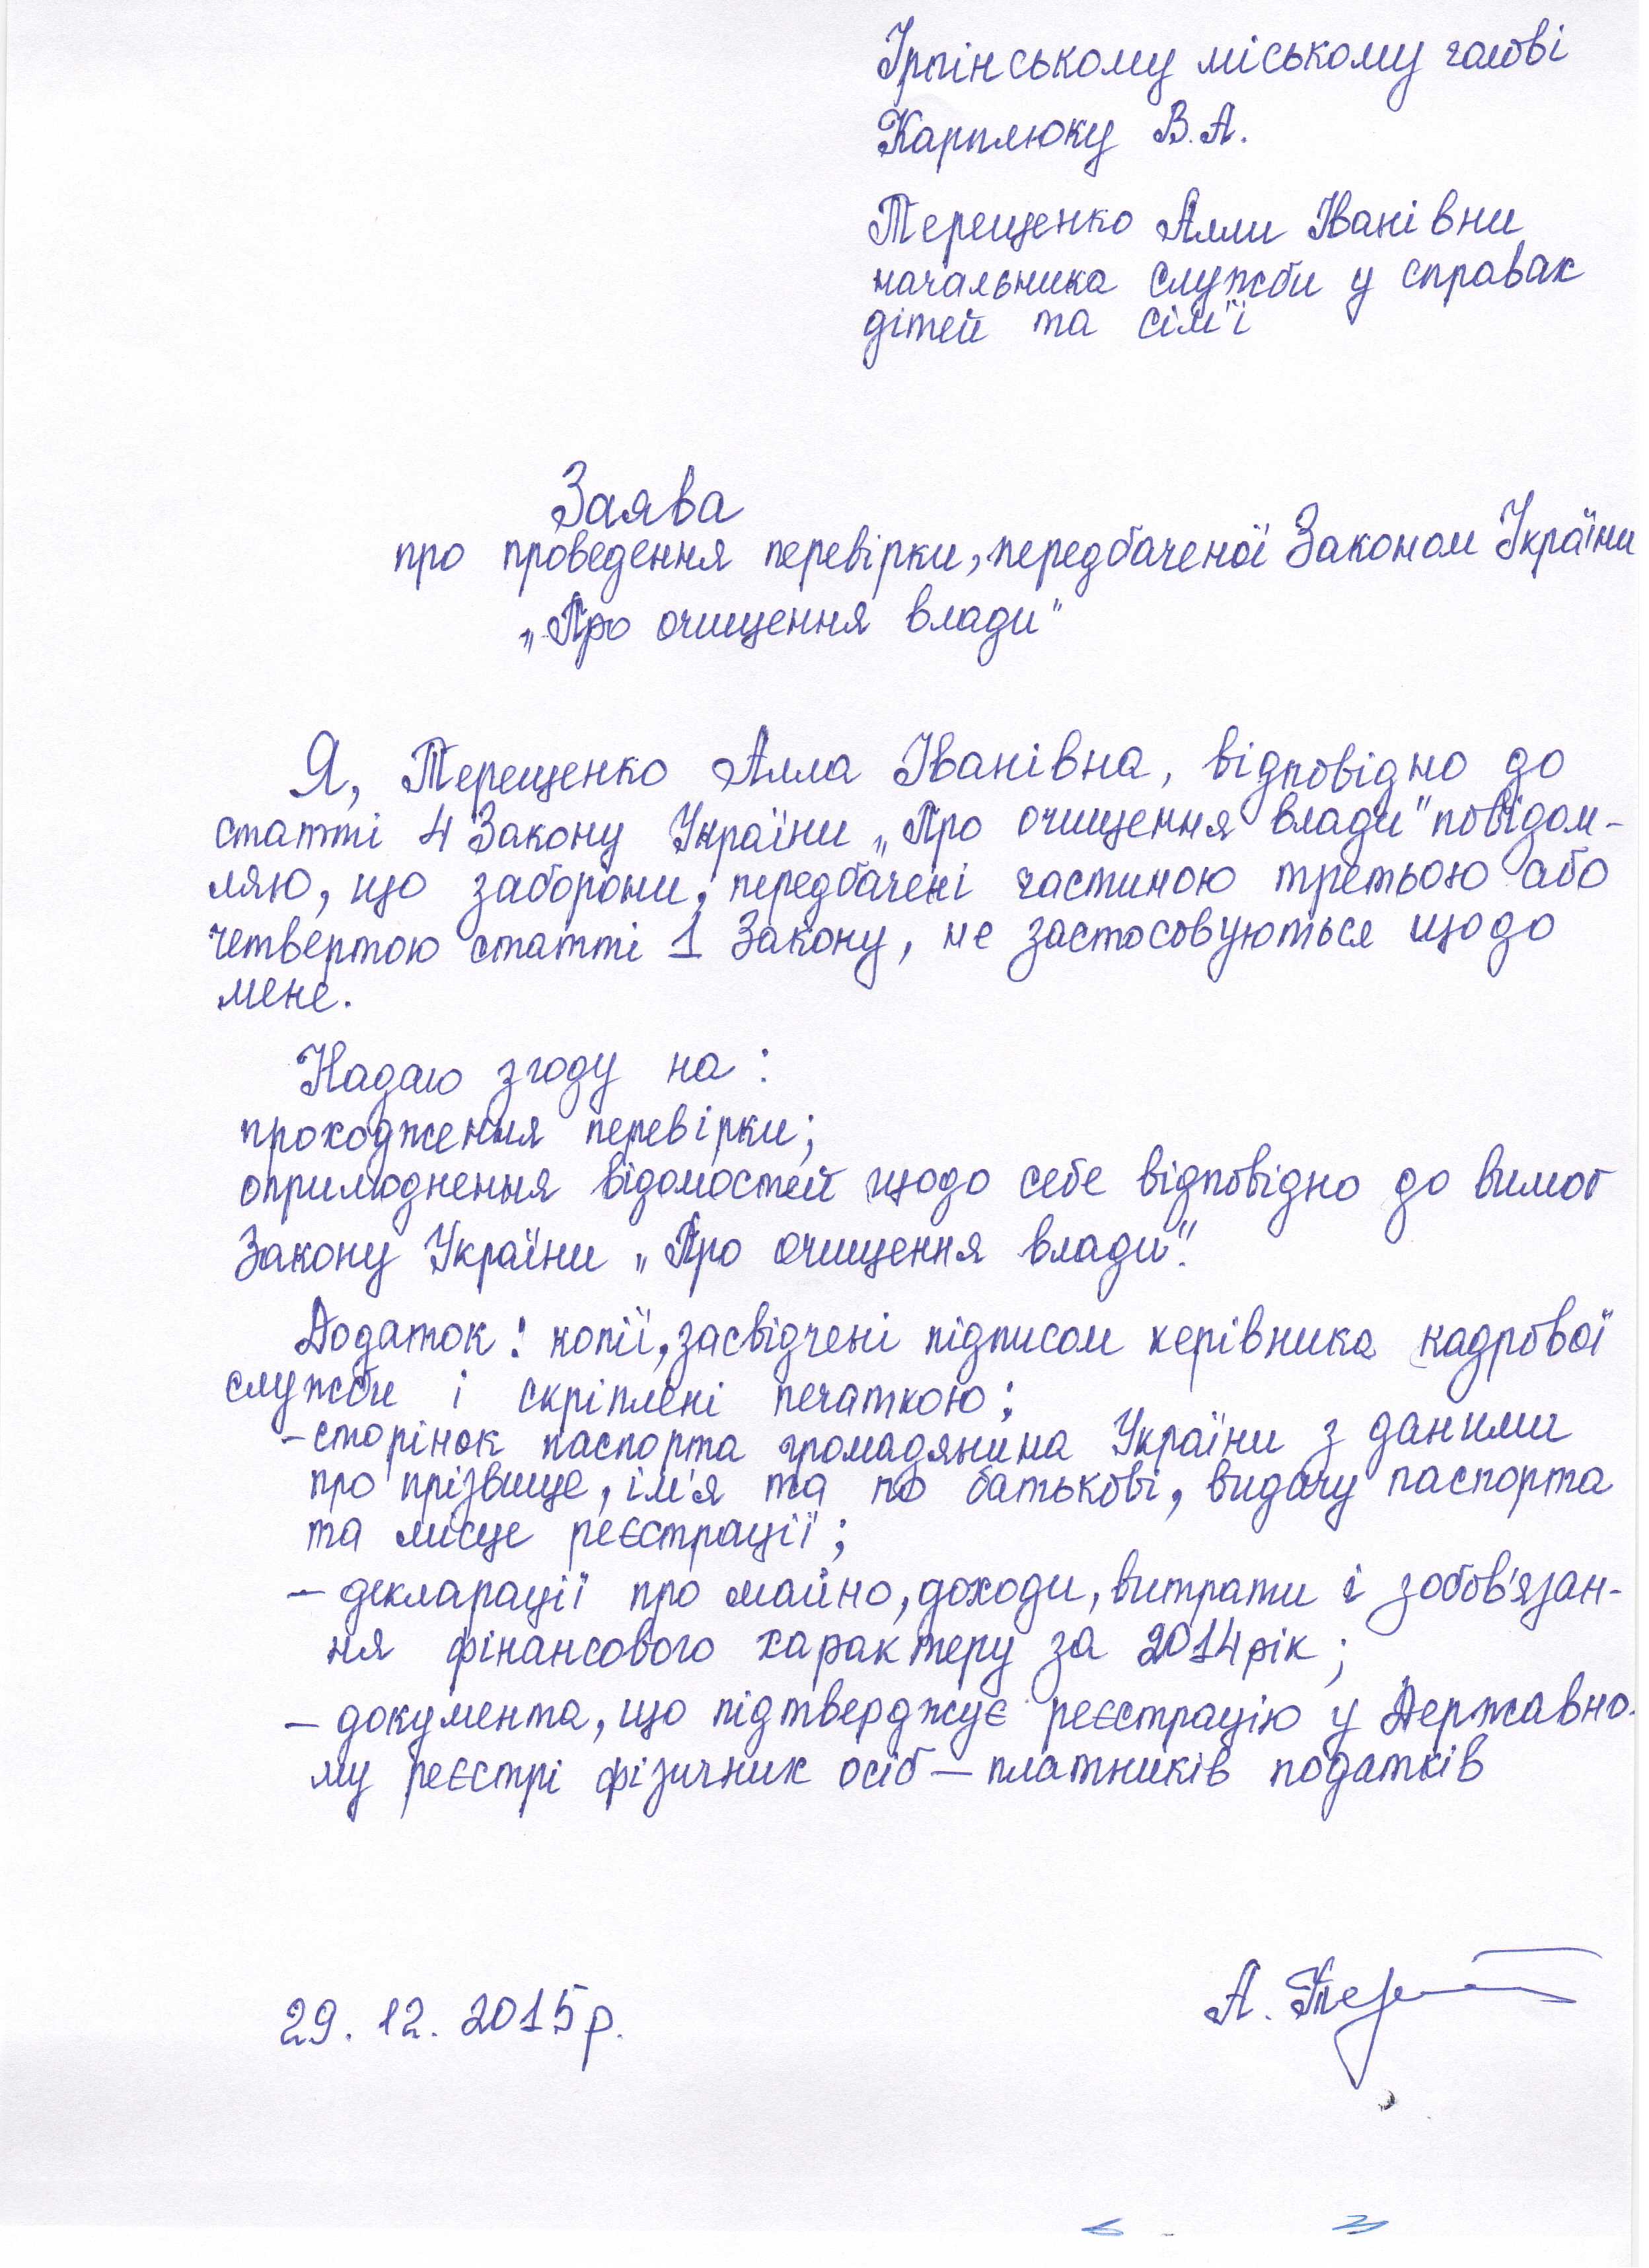 Ірпінському міському голові
Карплюку В.А.
Терещенко Алли Іванівни
начальника служби у справах
дітей та сім'ї
Заява
про проведення перевірки, передбаченої Законом України
„Про очищення влади"
Я, Терещенко Алла Іванівна, відповідно до
статті 4 Закону України „Про очищення влади" повідом-
ляю, що заборони, передбачені частиною третьою або
четвертою статті 1 Закону, не застосовуються щодо
мене.
Надаю згоду на:
проходження перевірки;
оприлюднення відомостей щодо себе відповідно до вимог
Закону України „Про очищення влади".
Додаток: копії, засвідчені підписом керівника кадрової
служби і скріплені печаткою:
- сторінок паспорта громадянина України з даними
про прізвище, ім'я та по батькові, видачу паспорта
та місце реєстрації;
- декларації про майно, доходи, витрати і зобов'язан-
ня фінансового характеру за 2014 рік;
- документа, що підтверджує реєстрацію у Державно-
му реєстрі фізичних осіб – платників податків
29.12.2015р.
А. Тере